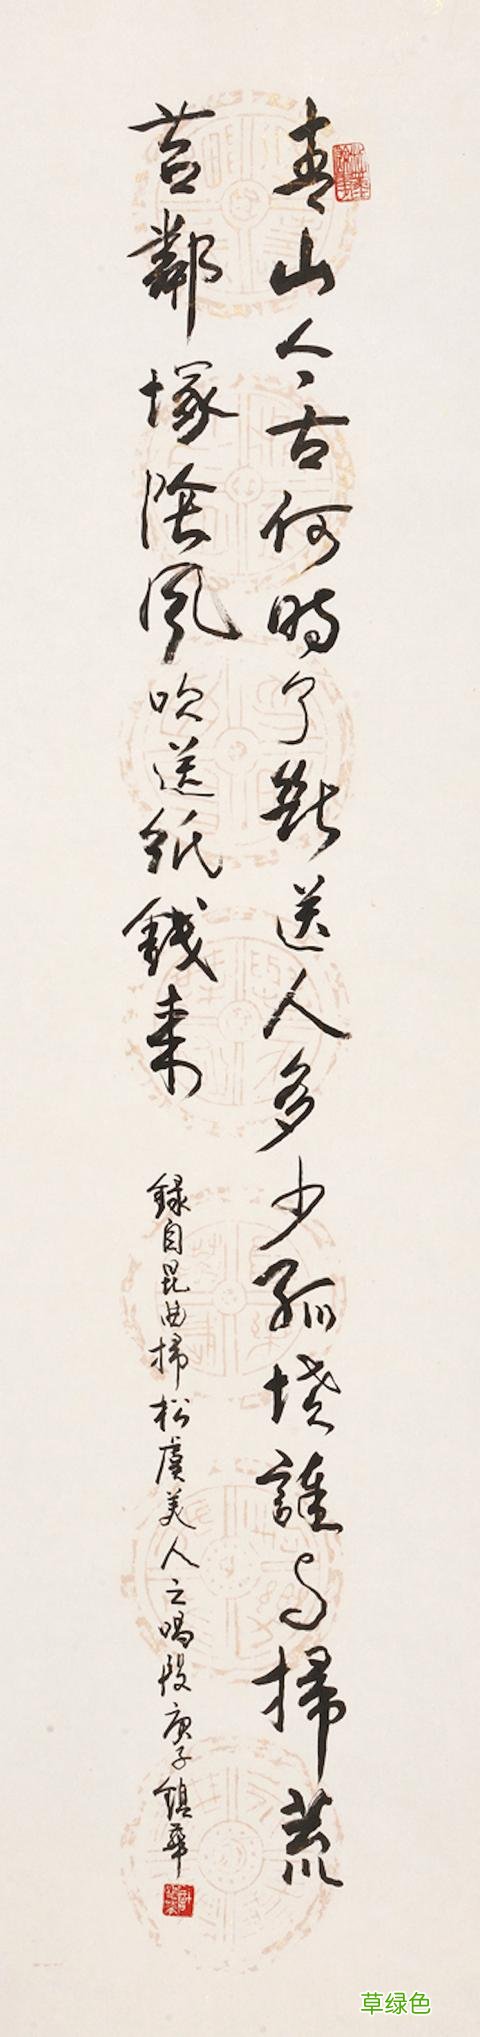 青山今古何時了斷送人多少孤墳誰与掃荒
苔鄰塚陰風吹送紙錢来
録自昆曲掃松虞美人之唱段庚子鎮華
草绿色